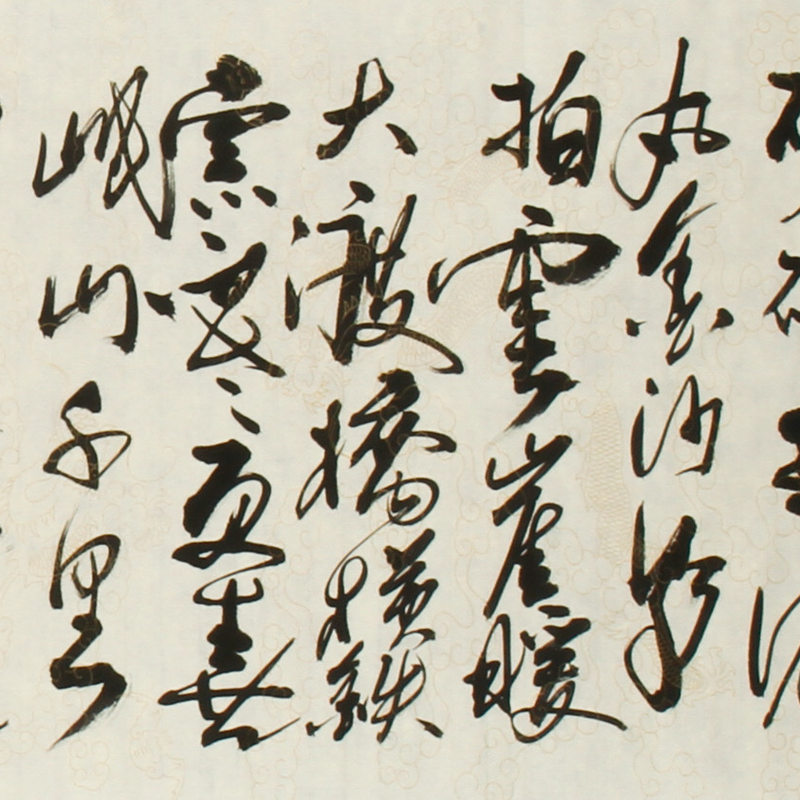 丸金沙水
拍雲崖暖
大渡橋横鉄
索寒更喜
岷山千里